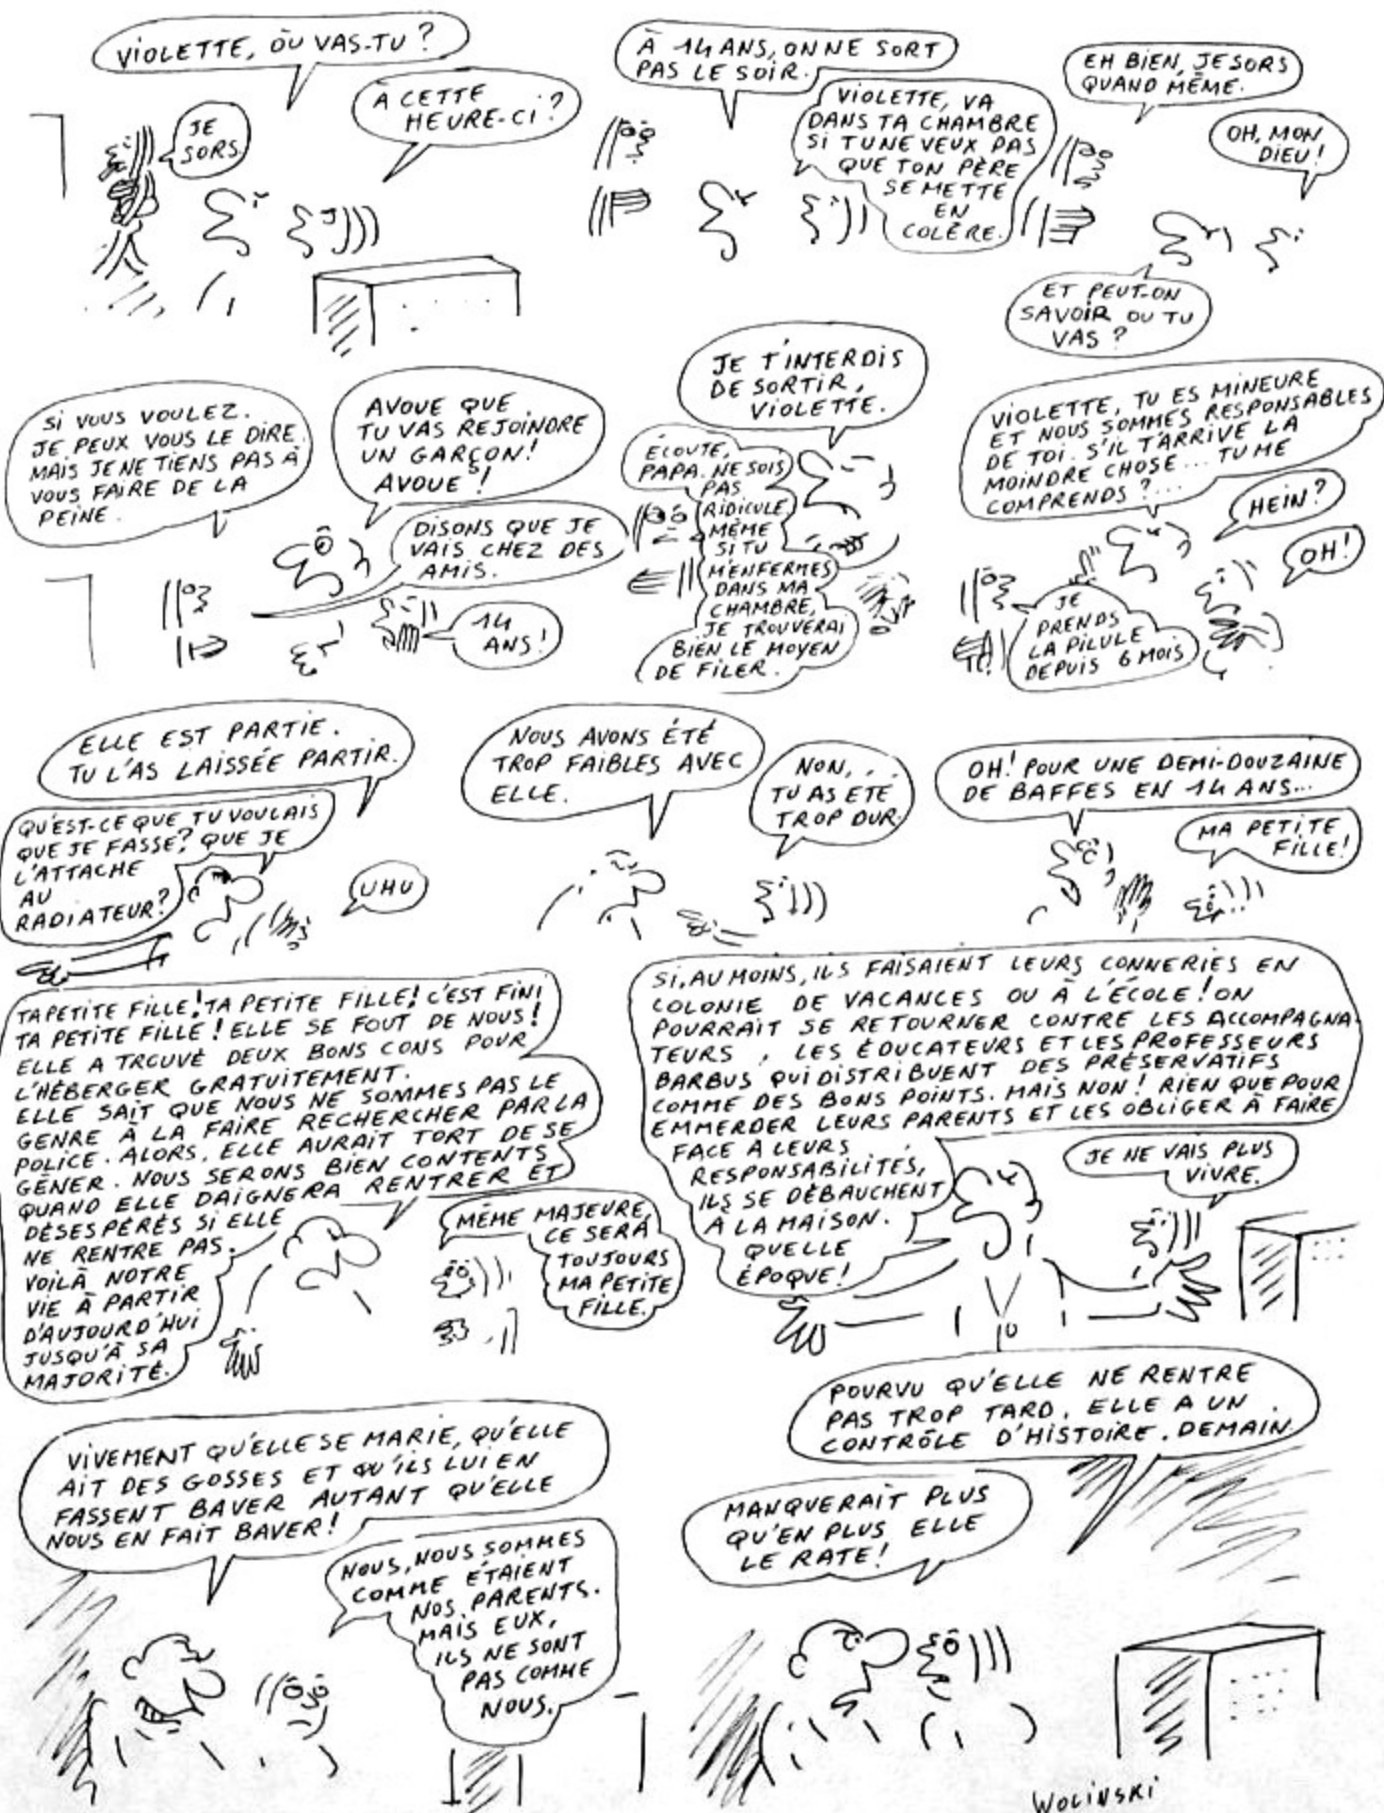 VIOLETTE, OÙ VAS-TU ?
JE
SORS.
À CETTE
HEURE-CI ?
À 14 ANS, ON NE SORT
PAS LE SOIR.
VIOLETTE, VA
DANS TA CHAMBRE
SI TU NE VEUX PAS
QUE TON PÈRE
SE METTE
EN
COLÈRE.
EH BIEN, JE SORS
QUAND MÊME.
OH, MON
DIEU !
ET PEUT-ON
SAVOIR OU TU
VAS ?
SI VOUS VOULEZ.
JE PEUX VOUS LE DIRE.
MAIS JE NE TIENS PAS À
VOUS FAIRE DE LA
PEINE.
AVOUE QUE
TU VAS REJOINDRE
UN GARÇON !
AVOUE !
DISONS QUE JE
VAIS CHEZ DES
AMIS.
14
ANS !
JE T'INTERDIS
DE SORTIR,
VIOLETTE.
ÉCOUTE,
PAPA. NE SOIS
PAS
RIDICULE
MÊME
SI TU
M'ENFERMES
DANS MA
CHAMBRE,
JE TROUVERAI
BIEN LE MOYEN
DE FILER.
VIOLETTE, TU ES MINEURE
ET NOUS SOMMES RESPONSABLES
DE TOI. S'IL T'ARRIVE LA
MOINDRE CHOSE... TU ME
COMPRENDS ?...
HEIN ?
OH !
JE
PRENDS
LA PILULE
DEPUIS 6 MOIS
ELLE EST PARTIE.
TU L'AS LAISSÉE PARTIR.
QU'EST-CE QUE TU VOULAIS
QUE JE FASSE ? QUE JE
L'ATTACHE
AU
RADIATEUR ?
UHU
NOUS AVONS ÉTÉ
TROP FAIBLES AVEC
ELLE.
NON,..
TU AS ÉTÉ
TROP DUR.
OH ! POUR UNE DEMI-DOUZAINE
DE BAFFES EN 14 ANS...
MA PETITE
FILLE !
TA PETITE FILLE ! TA PETITE FILLE ! C'EST FINI
TA PETITE FILLE ! ELLE SE FOUT DE NOUS !
ELLE A TROUVÉ DEUX BONS CONS POUR
L'HÉBERGER GRATUITEMENT.
ELLE SAIT QUE NOUS NE SOMMES PAS LE
GENRE À LA FAIRE RECHERCHER PAR LA
POLICE. ALORS, ELLE AURAIT TORT DE SE
GÊNER. NOUS SERONS BIEN CONTENTS
QUAND ELLE DAIGNERA RENTRER ET
DÉSESPÉRÉS SI ELLE
NE RENTRE PAS.
VOILÀ NOTRE
VIE À PARTIR
D'AUJOURD'HUI
JUSQU'À SA
MAJORITÉ.
MÊME MAJEURE,
CE SERA
TOUJOURS
MA PETITE
FILLE.
SI, AU MOINS, ILS FAISAIENT LEURS CONNERIES EN
COLONIE DE VACANCES OU À L'ÉCOLE ! ON
POURRAIT SE RETOURNER CONTRE LES ACCOMPAGNA-
TEURS, LES ÉDUCATEURS ET LES PROFESSEURS
BARBUS QUI DISTRIBUENT DES PRÉSERVATIFS
COMME DES BONS POINTS. MAIS NON ! RIEN QUE POUR
EMMERDER LEURS PARENTS ET LES OBLIGER À FAIRE
FACE A LEURS
RESPONSABILITÉS,
ILS SE DÉBAUCHENT
À LA MAISON.
QUELLE
ÉPOQUE !
JE NE VAIS PLUS
VIVRE.
VIVEMENT QU'ELLE SE MARIE, QU'ELLE
AIT DES GOSSES ET QU'ILS LUI EN
FASSENT BAVER AUTANT QU'ELLE
NOUS EN FAIT BAVER !
NOUS, NOUS SOMMES
COMME ÉTAIENT
NOS PARENTS.
MAIS EUX,
ILS NE SONT
PAS COMME
NOUS.
POURVU QU'ELLE NE RENTRE
PAS TROP TARD. ELLE A UN
CONTRÔLE D'HISTOIRE. DEMAIN.
MANQUERAIT PLUS
QU'EN PLUS ELLE
LE RATE !
WOLINSKI